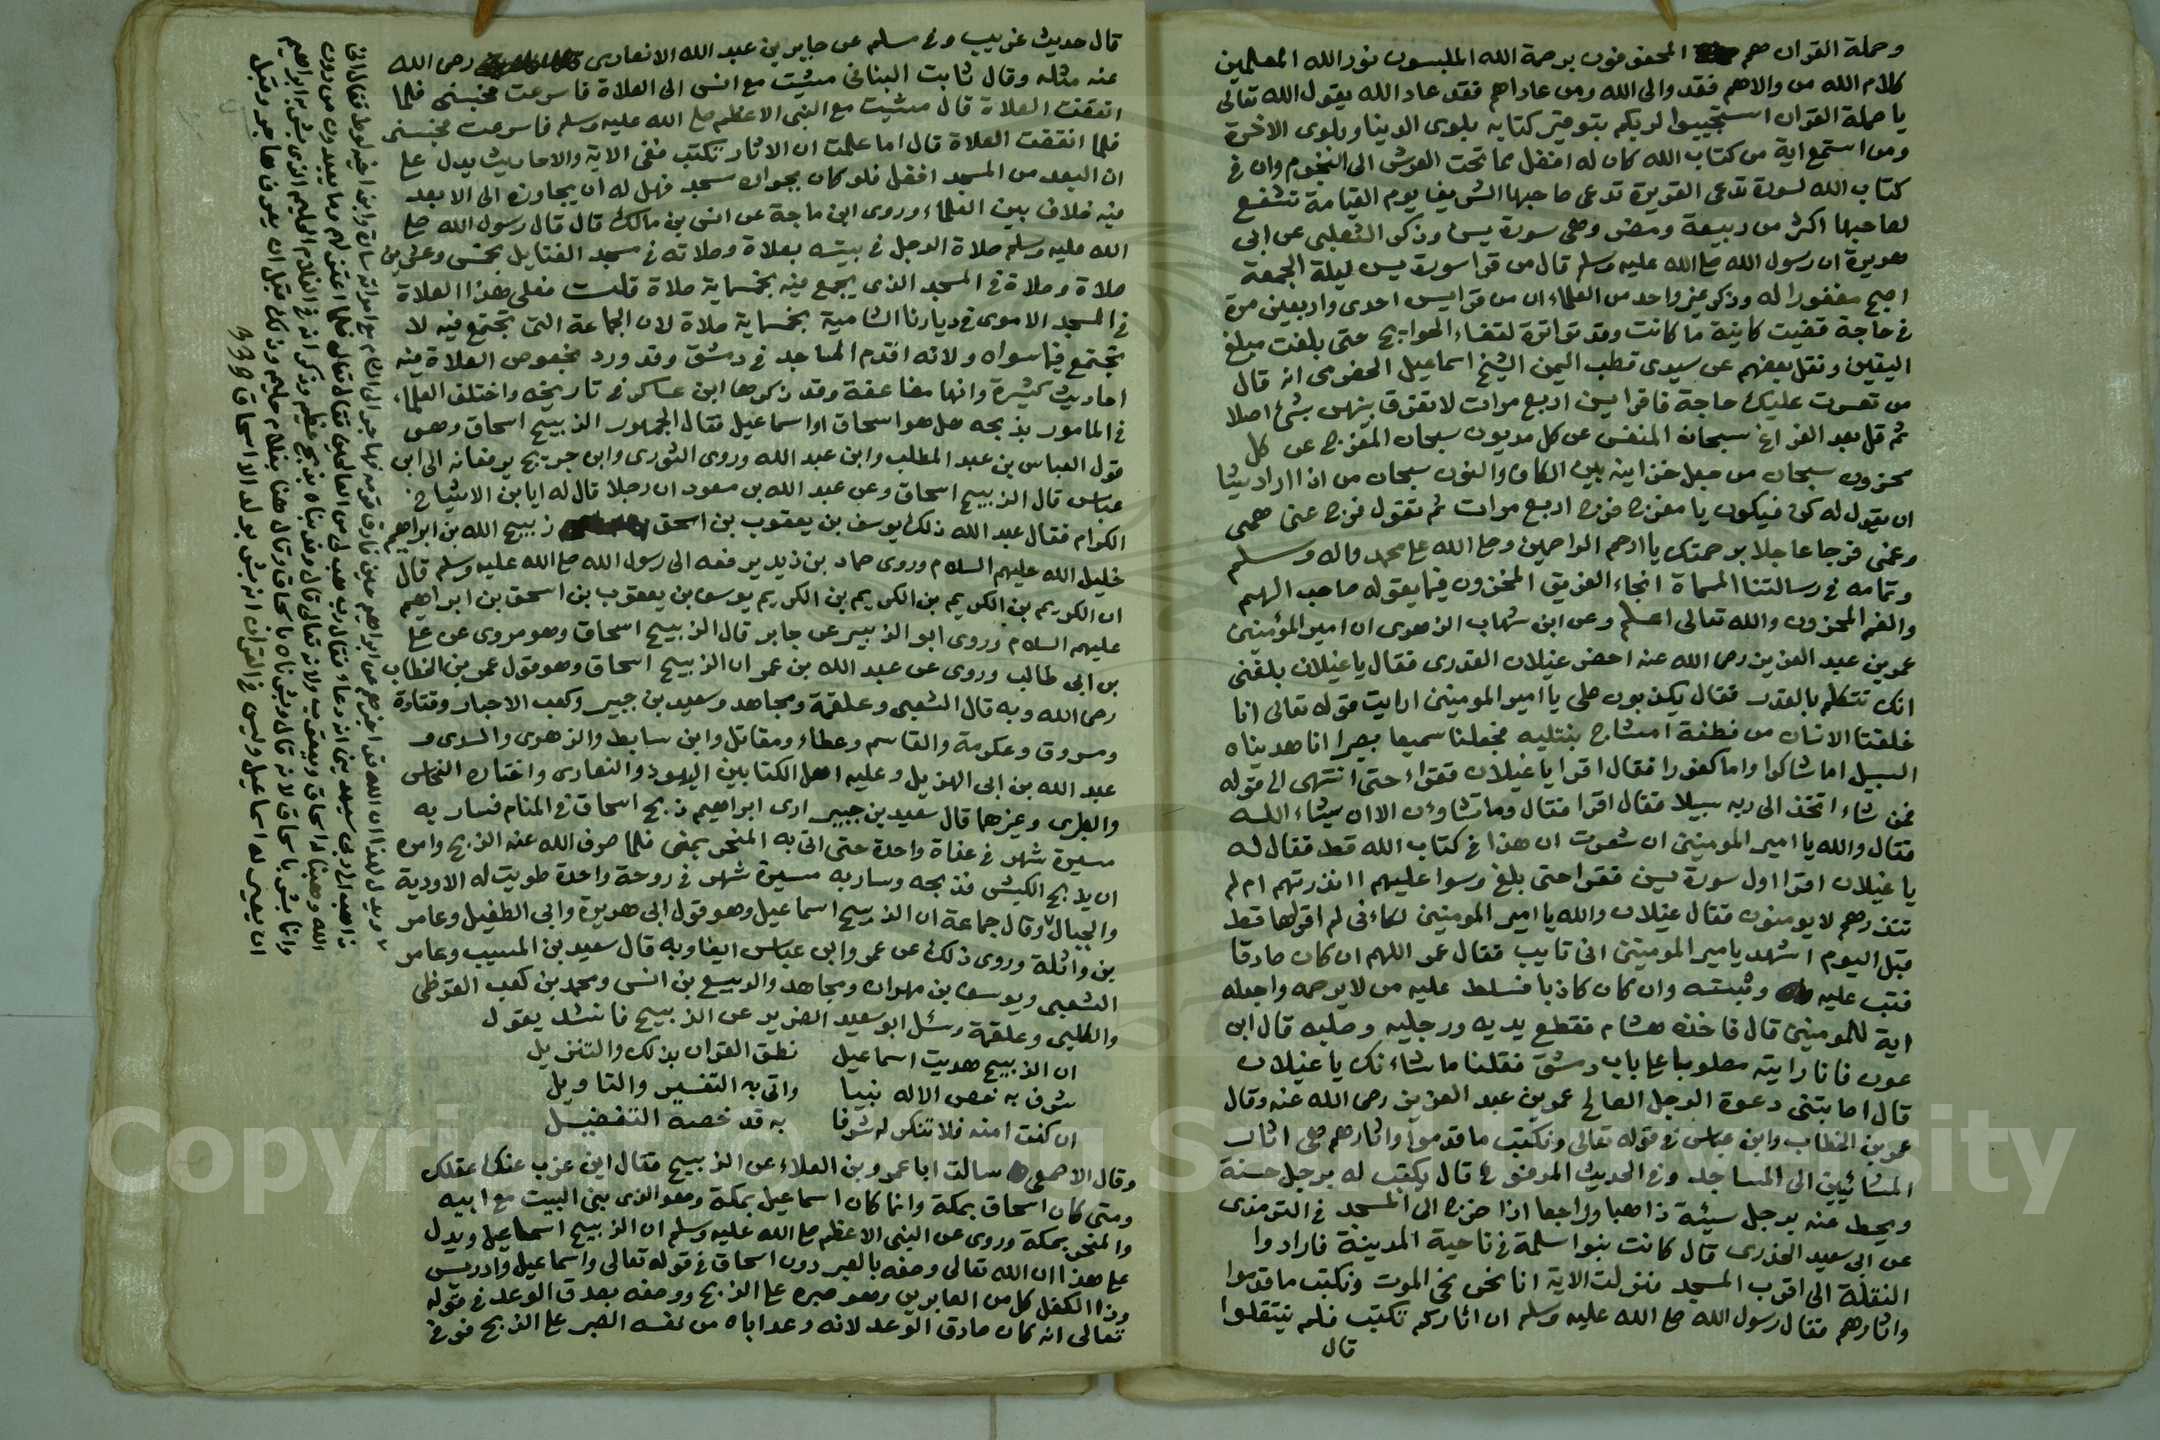 وحملة القران هم المحفوفون برحمة الله الملبسون نور الله المعلمين
كلام الله من والاهم فقد والى الله ومن عاداهم فقد عاد الله يقول الله تعالى
يا حملة القران استجيبوا لربكم بتوقير كتابه بلوى الدينا وبلوى الاخرة
ومن استمع اية من كتاب الله كان له افضل مما تحت العرش الى التخوم وان في
كتاب الله لسورة تدعى العزيزة تدعى صاحبها الشريف يوم القيامة تشفع
لصاحبها اكثر من ربيعة ومضر وهى سورة يس وذكر الثعلبى عن ابى
هريرة ان رسول الله صلى الله عليه وسلم قال من قرا سورة يس ليلة الجمعة
اصبح مغفورا له وذكر غير واحد من العلماء ان من قرا يس احدى واربعين مرة
في حاجة قضيت كاينة ما كانت وقد تواترة لقضاء الحوايج حتى بلغت مبلغ
اليقين ونقل بعضهم عن سيدى قطب اليمن الشيخ اسماعيل الحضرمى انه قال
من تعسرت عليك حاجة فاقرا يس اربع مرات لا تفرق بينهن بشئ اصلا
ثم قل بعد الفراغ سبحان المنفس عن كل مديون سبحان المفرج عن كل
محزون سبحان من جعل خزاينه بين الكاف والنون سبحان من اذا اراد شيئا
ان يقول له كن فيكون يا مفرج فرج اربع مرات ثم تقول فرج عنى همى
وغمى فرجا عاجلا برحمتك يا ارحم الراحمين وصلى الله على محمد واله وسلم
وتمامه في رسالتنا المسماة انجاء الغريق المخزون فيما يقوله صاحب الهم
والغم المحزون والله تعالى اعلم وعن ابن شهاب الزهرى ان امير المؤمنين
عمر بن عبد العزيز رضى الله عنه احضر غيلان القدرى فقال يا غيلان بلغنى
انك تتكلم بالقدر فقال يكذبون على يا امير المومنين ارايت قوله تعالى انا
خلقنا الانسان من نطفة امشاج نبتليه فجعلناه سميعا بصيرا انا هديناه
السبيل اما شاكرا واما كفورا فقال اقرا يا غيلان فقراء حتى انتهى الى قوله
فمن شاء اتخذ الى ربه سبيلا فقال اقرا فقال وما تشاؤن الا ان يشاء الله
فقال والله يا امير المومنين ان شعرت ان هذا في كتاب الله قط فقال له
يا غيلان اقرا اول سورة يس فقرا حتى بلغ وسوا عليهم اانذرتهم ام لم
تنذرهم لا يومنون فقال غيلان والله يا امير المومنين لكانى لم اقرلها قط
قبل اليوم اشهد يا مير المومنين انى تايب فقال عمر اللهم ان كان صادقا
فتب عليه وثبته وان كان كاذبا فسلط عليه من لا يرحمه واجعله
اية للمومنين قال فاخذه هشام فقطع يديه ورجليه وصلبه قال ابن
عون فانا رايته مصلوبا على باب دمشق فقلنا ما شانك يا غيلان
قال اصابتنى دعوة الرجل الصالح عمر بن عبد العزيز رضى الله عنه وقال
عمر بن الخطاب وابن عباس في قوله تعالى ونكتب ما قدموا واثارهم هى اثار
المشائيين الى المساجد وفي الحديث المرفوع قال يكتب له برجل حسنة
ويحط عنه برجل سيئة ذاهبا وراجعا اذا خرج الى المسجد في الترمذى
عن ابى سعيد الخدرى قال كانت بنوا سلمة في ناحية المدينة فارادوا
النقلة الى اقرب المسجد فنزلت الاية انا نحن نحى الموت ونكتب ما قدموا
واثارهم فقال رسول الله صلى الله عليه وسلم ان اثاركم تكتب فلم ينتقلوا
قال
قال حديث غريب وفي مسلم عن جابر بن عبد الله الانصارى رضى الله
عنه مثله وقال ثابت البنانى مشيت مع انس الى الصلاة فاسرعت فحبسنى فلما
انقضت الصلاة قال مشيت مع النبى الاعظم صلى الله عليه وسلم فاسرعت فحبسنى
فلما انقضت الصلاة قال اما علمت ان الاثار تكتب ففى الاية والاحاديث يدل على
ان البعد من المسجد افضل فلو كان بجواره مسجد فهل له ان يجاوزه الى الابعد
فيه خلاف بين العلماء وروى ابن ماجة عن انس بن مالك قال قال رسول الله صلى
الله عليه وسلم صلاة الرجل في بيته بصلاة وصلاته في مسجد القبايل بخمس وعشرين
صلاة وصلاة في المسجد الذى يجمع فيه بخمساية صلاة قلت فعلى هذا الصلاة
في المسجد الاموى في ديارنا الشامية بخمساية صلاة لان الجماعة التى تجتمع فيه لا
تجتمع فيما سواه ولانه اقدم المساجد في دمشق وقد ورد بخصوص الصلاة فيه
احاديث كثيرة وانها مضاعفة وقد ذكرها ابن عساكر في تاريخه واختلف العلماء
في المامور بذبحه هل هو اسحاق او اسماعيل فقال الجمهور الذبيح اسحاق وهو
قول العباس بن عبد المطلب وابن عبد الله وروى الثورى وابن جريج يرفعانه الى ابن
عباس قال الذبيح اسحاق وعن عبد الله بن مسعود ان رجلا قال له يا بن الاشياخ
الكرام فقال عبد الله ذلك يوسف بن يعقوب بن اسحق ذبيح الله بن ابراهيم
خليل الله عليهم السلام وروى حماد بن زيد يرفعه الى رسول الله صلى الله عليه وسلم قال
ان الكريم بن الكريم بن الكريم بن الكريم يوسف بن يعقوب بن اسحق بن ابراهيم
عليهم السلام وروى ابو الزبير عن جابر قال الذبيح اسحاق وهو مروى عن على
بن ابى طالب وروى عن عبد الله بن عمر ان الذبيح اسحاق وهو قول عمر بن الخطاب
رضى الله وبه قال الشعبى وعلقمة ومجاهد وسعيد بن جبير وكعب الاحبار وقتادة
ومسروق وعكرمة والقاسم وعطاء ومقاتل وابن سابط والزهرى والسدى و
عبد الله بن ابى الهذيل وعليه اهل الكتابين اليهود والنصارى واختاره النحاس
والطبرى وغيرهما قال سعيد بن جبير ارى ابراهيم ذبح اسحاق في المنام فسار به
مسيرة شهر في غداة واحدة حتى اتى به المنحر بمنى فلما صرف الله عنه الذبح وامره
ان يذبح الكبش فذبحه وسار به مسيرة شهر في روحة واحدة طويت له الاودية
والجبال وقال جماعة ان الذبيح اسماعيل وهو قول ابى هريرة وابى الطفيل وعامر
بن واثلة وروى ذلك عن عمر وابن عباس ايضا وبه قال سعيد بن المسيب وعامر
الشعبى ويوسف بن مهران ومجاهد والربيع بن انس ومحمد بن كعب القرظى
والكلبى وعلقمة وسئل ابو سعيد الضرير عن الذبيح فانشد يقول
ان الذبيح هديت اسماعيل نطق القران بذلك والتنزيل
شرف به خص الاله نبينا واتى به التفسير والتاويل
ان كنت امته فلا تنكر له شرفا به قد خصه التفضيل
وقال الاصمعى سالت ابا عمرو بن العلاء عن الذبيح فقال اين عزب عنك عقلك
ومتى كان اسحاق بمكة وانما كان اسماعيل بمكة وهو الذى بنى البيت مع ابيه
والمنحر بمكة وروى عن النبى الاعظم صلى الله عليه وسلم ان الذبيح اسماعيل ويدل
على هذا ان الله تعالى وصفه بالصبر دون اسحاق في قوله تعالى واسماعيل وادريس
وذا الكفل كل من الصابرين وهو صبره على الذبح ووصفه بصدق الوعد في قوله
تعالى انه كان صادق الوعد لانه وعد اباه من نفسه الصبر على الذبح فوفى
ويدل لهذا ان الله قد اخبرهم عن ابراهيم حين فارق قومه فهاجر الى الشام مع امراته سارة وابن اخيه لوط فقال انى
ذاهب الى ربى سيهدينى انه دعاء فقال رب هب لى من الصالحين فقال تعالى فلما اعتزلهم وما يعبدون من دون
الله وهبنا له اسحاق ويعقوب ولانه تعالى قال وفديناه بذبح عظيم فذكر انه في الغلام الحليم الذى بشر به ابراهيم
وانما بشر باسحاق لانه قال وبشرناه باسحاق وقال هنا بغلام حليم وذلك قبل ان يعرف هاجر وقبل
ان يصير له اسماعيل وليس في القران انه بشر بولد الا اسحاق
Copyright © King Saud University